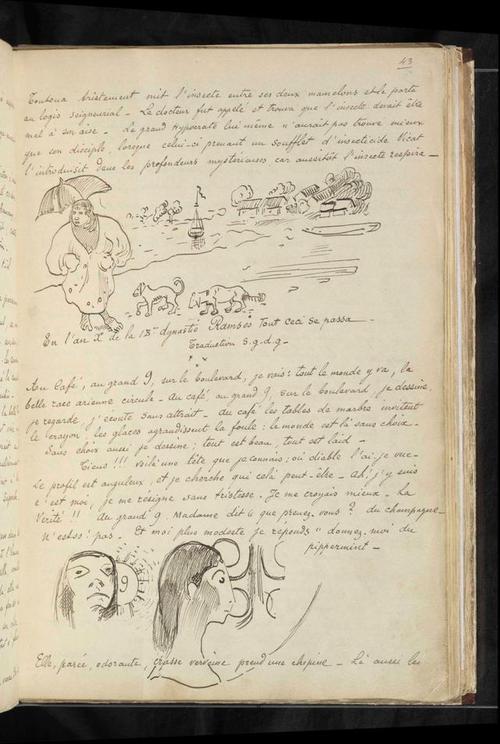 43
Toutoua tristement mit l'insecte entre ses deux mamelons et le porte
au logis seigneurial - Le docteur fut appelé et trouva que l'insecte devait être
mal à son aise. Le grand Hypocrate lui même n'aurait pas trouvé mieux
que son disciple, lorsque celui-ci prenant un soufflet d'insecticide Vicat
l'introduisit dans les profondeurs mystérieuses car aussitôt l'insecte respire -
En l'an X de la 13me dynastie Ramsès Tout ceci se passa -
Traduction S.g.d.g -
Au Café, au grand 9, sur le boulevard, je vais: tout le monde y va, la
belle race arienne circule - au café, au grand 9, sur le boulevard, je dessine,
je regarde, j'écoute sans attrait - au café les tables de marbre invitent
le crayon, les glaces agrandissent la foule: le monde est là sans choix -
Sans choix aussi je dessine; tout est beau, tout est laid -
Tiens!!! voilà une tête que je connais; où diable l'ai-je vue -
Le profil est anguleux, et je cherche qui celà peut-être - Ah! j'y suis
c'est moi, je me résigne sans tristesse. Je me croyais mieux - La
Vérité!! Au grand 9 Madame dit: que prenez-vous? du champagne -
N'est-ce pas - Et moi plus modeste je réponds " donnez-moi du
pippermint -
9
Elle, parée, odorante, crasse verveine prend une chopine - Là aussi les